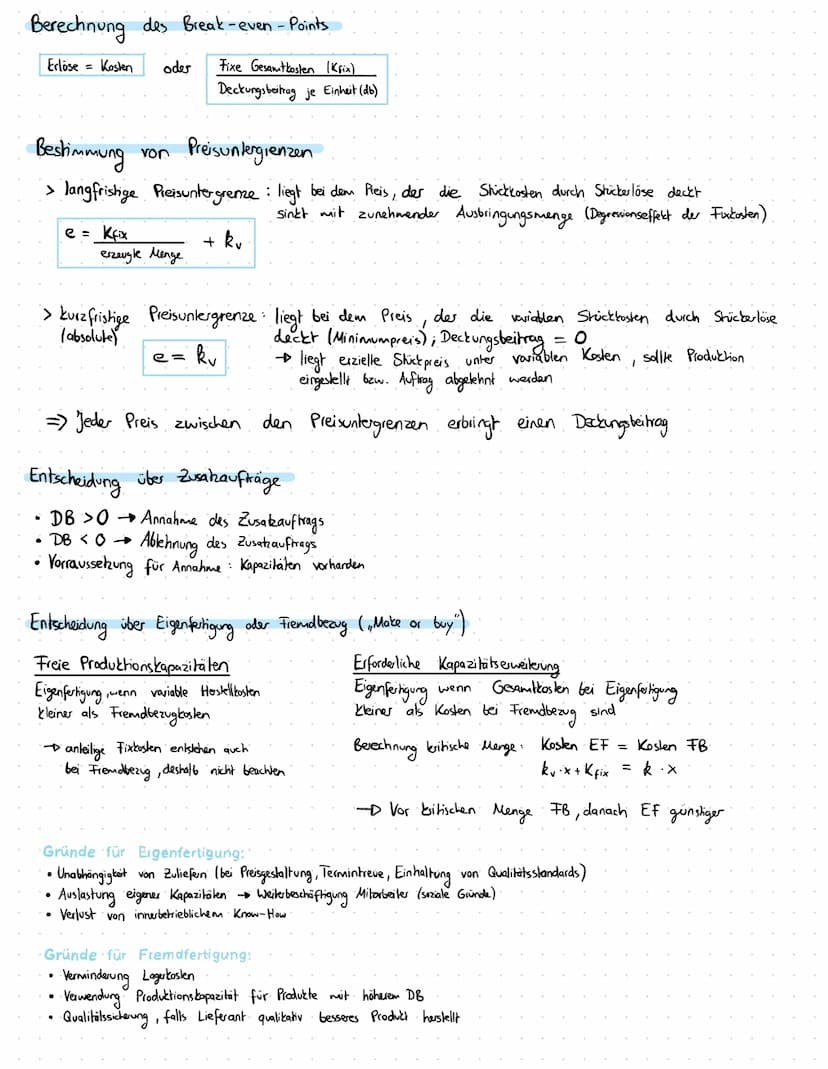 Berechnung des Break-even-Points
Erlöse = Kosten oder Fixe Gesamtkosten (Kfix)
Deckungsbeitrag je Einheit (db)
Bestimmung von Preisuntergrenzen
> langfristige Preisuntergrenze : liegt bei dem Preis, der die Stückkosten durch Stückerlöse deckt
sinkt mit zunehmender Ausbringungsmenge (Degressionseffekt der Fixkosten)
e = Kfix + kv
erzeugte Menge
> kurzfristige Preisuntergrenze : liegt bei dem Preis, der die variablen Stückkosten durch Stückerlöse
(absolute) deckt (Minimumpreis) ; Deckungsbeitrag = 0
e = kv → liegt erzielte Stückpreis unter variablen Kosten, sollte Produktion
eingestellt bzw. Auftrag abgelehnt werden
=> Jeder Preis zwischen den Preisuntergrenzen erbringt einen Deckungsbeitrag
Entscheidung über Zusatzaufträge
• DB > 0 → Annahme des Zusatzauftrags
• DB < 0 → Ablehnung des Zusatzauftrags
• Vorraussetzung für Annahme : Kapazitäten vorhanden
Entscheidung über Eigenfertigung oder Fremdbezug („Make or buy")
Freie Produktionskapazitäten
Eigenfertigung, wenn variable Herstellkosten
kleiner als Fremdbezugkosten
→ anteilige Fixkosten entstehen auch
bei Fremdbezug, deshalb nicht beachten
Erforderliche Kapazitätserweiterung
Eigenfertigung wenn Gesamtkosten bei Eigenfertigung
kleiner als Kosten bei Fremdbezug sind
Berechnung kritische Menge : Kosten EF = Kosten FB
kv · x + Kfix = k · x
→ Vor kritischen Menge FB, danach EF günstiger
Gründe für Eigenfertigung:
• Unabhängigkeit von Zuliefern (bei Preisgestaltung, Termintreue, Einhaltung von Qualitätsstandards)
• Auslastung eigener Kapazitäten → Weiterbeschäftigung Mitarbeiter (soziale Gründe)
• Verlust von innerbetrieblichem Know-How
Gründe für Fremdfertigung:
• Verminderung Lagerkosten
• Verwendung Produktionskapazität für Produkte mit höherem DB
• Qualitätssicherung, falls Lieferant qualitativ besseres Produkt herstellt